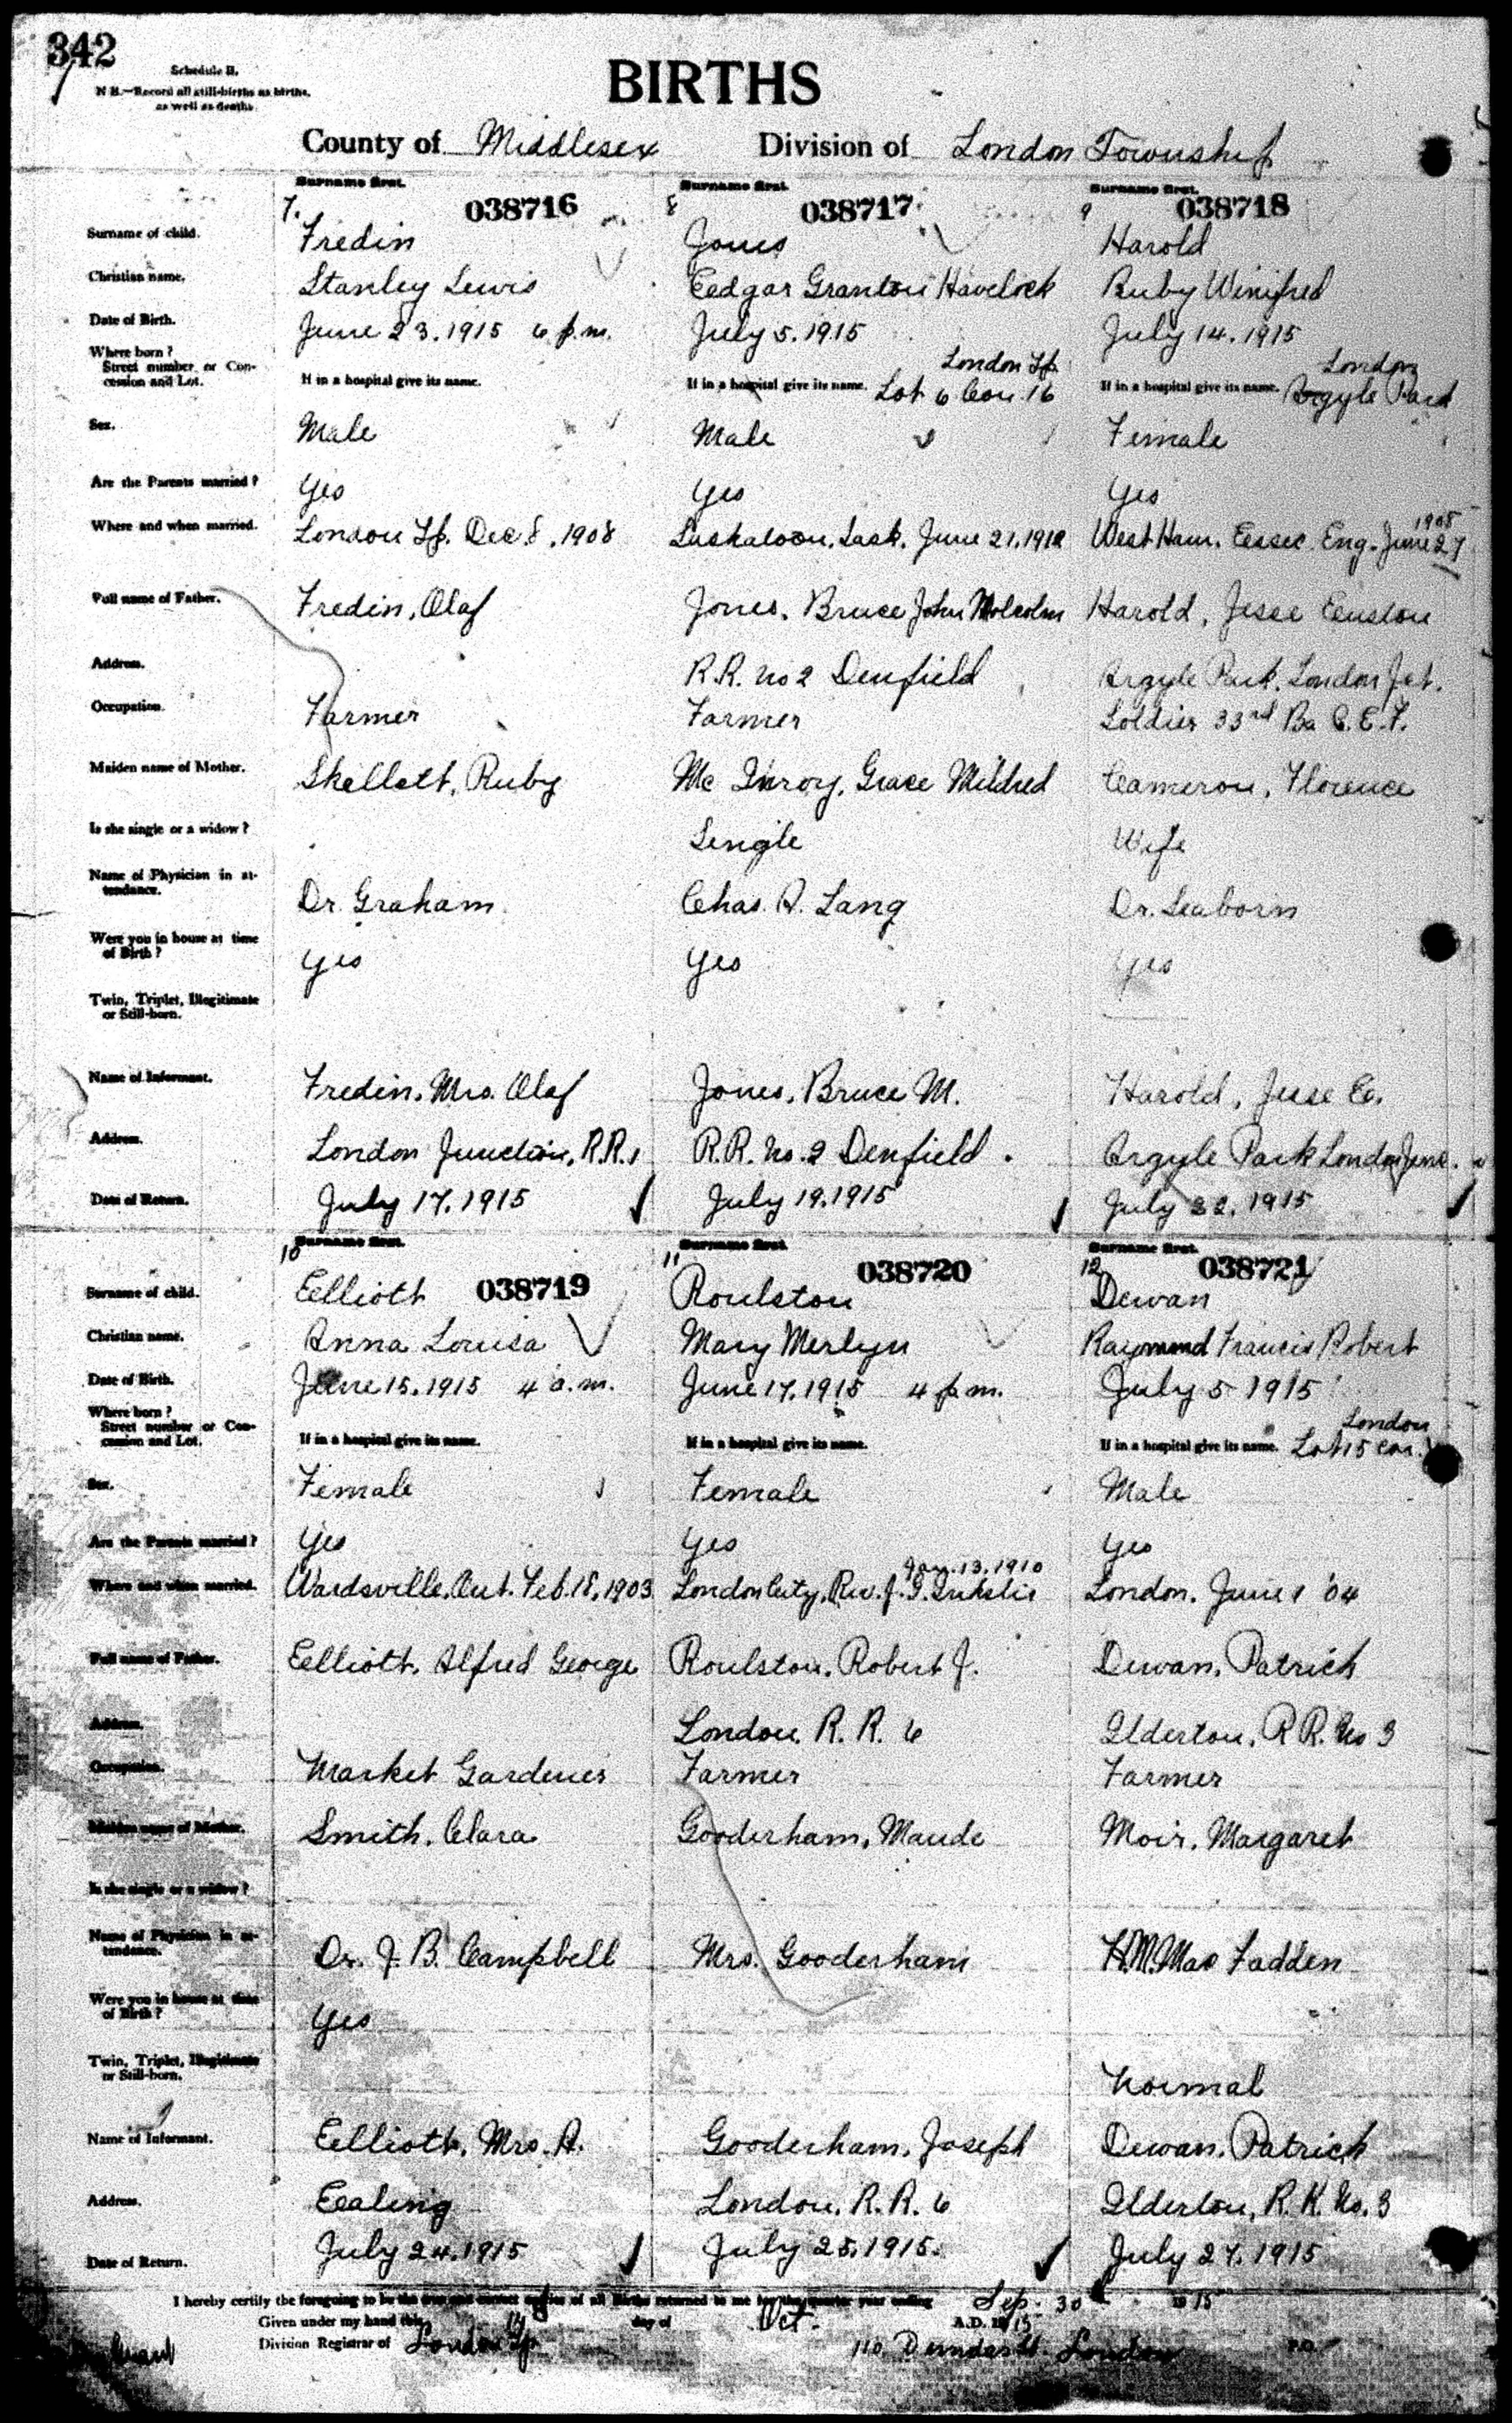 342
Schedule B.
N.B.—Record all still-births as births,
as well as deaths.
BIRTHS
County of Middlesex Division of London Township
Surname first. Surname first. Surname first.
7. 038716 8 038717 9 038718
Surname of child. Fredin Jones Harold
Christian name. Stanley Lewis Edgar Granton Havelock Ruby Winifred
Date of Birth. June 23. 1915 6 p.m. July 5. 1915 July 14. 1915
Where born? London Tp. London
Street number or Concession and Lot. If in a hospital give its name. If in a hospital give its name. Lot 6 Con. 16 If in a hospital give its name. Argyle Park
Sex. Male Male Female
Are the Parents married? Yes Yes Yes
1905
Where and when married. London Tp. Dec 8, 1908 Saskatoon, Sask. June 21. 1912 West Ham. Essex Eng. June 27
Full name of Father. Fredin, Olaf Jones, Bruce John Malcolm Harold, Jesse
Address. R.R. No 2 Denfield Argyle Park, London Jct.
Occupation. Farmer Farmer Soldier 33rd Ba C.E.F.
Maiden name of Mother. Skellett, Ruby Mc Inroy, Grace Mildred Cameron, Florence
Is she single or a widow? Single Wife
Name of Physician in attendance. Dr. Graham Chas. A. Lang Dr. Seaborn
Were you in house at time of Birth? Yes Yes Yes
Twin, Triplet, Illegitimate or Still-born.
Name of Informant. Fredin, Mrs. Olaf Jones, Bruce M. Harold, Jesse E.
Address. London Junction, R.R.1 R.R. No. 2 Denfield. Argyle Park London Junc.
Date of Return. July 17. 1915 July 19. 1915 July 22. 1915
Surname first. Surname first. Surname first.
10 038719 11 038720 12 038721
Surname of child. Elliott Roulston Dewan
Christian name. Anna Louisa Mary Merlyn Raymond Francis Robert
Date of Birth. June 15. 1915 4 a.m. June 17. 1915 4 p.m. July 5 1915
Where born? London
Street number or Concession and Lot. If in a hospital give its name. If in a hospital give its name. If in a hospital give its name. Lot 15 Con.
Sex. Female Female Male
Are the Parents married? Yes Yes Yes
Jan. 13. 1910
Where and when married. Wardsville, Ont. Feb. 18, 1903 London City, Rev. J. G. London. June 1 '04
Full name of Father. Elliott, Alfred George Roulston, Robert J. Dewan, Patrick
Address. London. R. R. 6 Ilderton, R R. No 3
Occupation. Market Gardener Farmer Farmer
Maiden name of Mother. Smith, Clara Gooderham, Maude Moir, Margaret
Is she single or a widow?
Name of Physician in attendance. Dr. J. B. Campbell Mrs. Gooderham H.M. Mac Fadden
Were you in house at time of Birth? Yes
Twin, Triplet, Illegitimate or Still-born. Normal
Name of Informant. Elliott, Mrs. A. Gooderham, Joseph Dewan, Patrick
Address. Ealing London, R. R. 6 Ilderton, R. R. No. 3
Date of Return. July 24. 1915 July 25. 1915. July 27. 1915
I hereby certify the foregoing to be the true and correct copies of all Births returned to me for the quarter year ending Sep. 30 1915
Given under my hand this 14 day of Oct. A.D. 1915
Division Registrar of London Tp 110 Dundas St. London P.O.